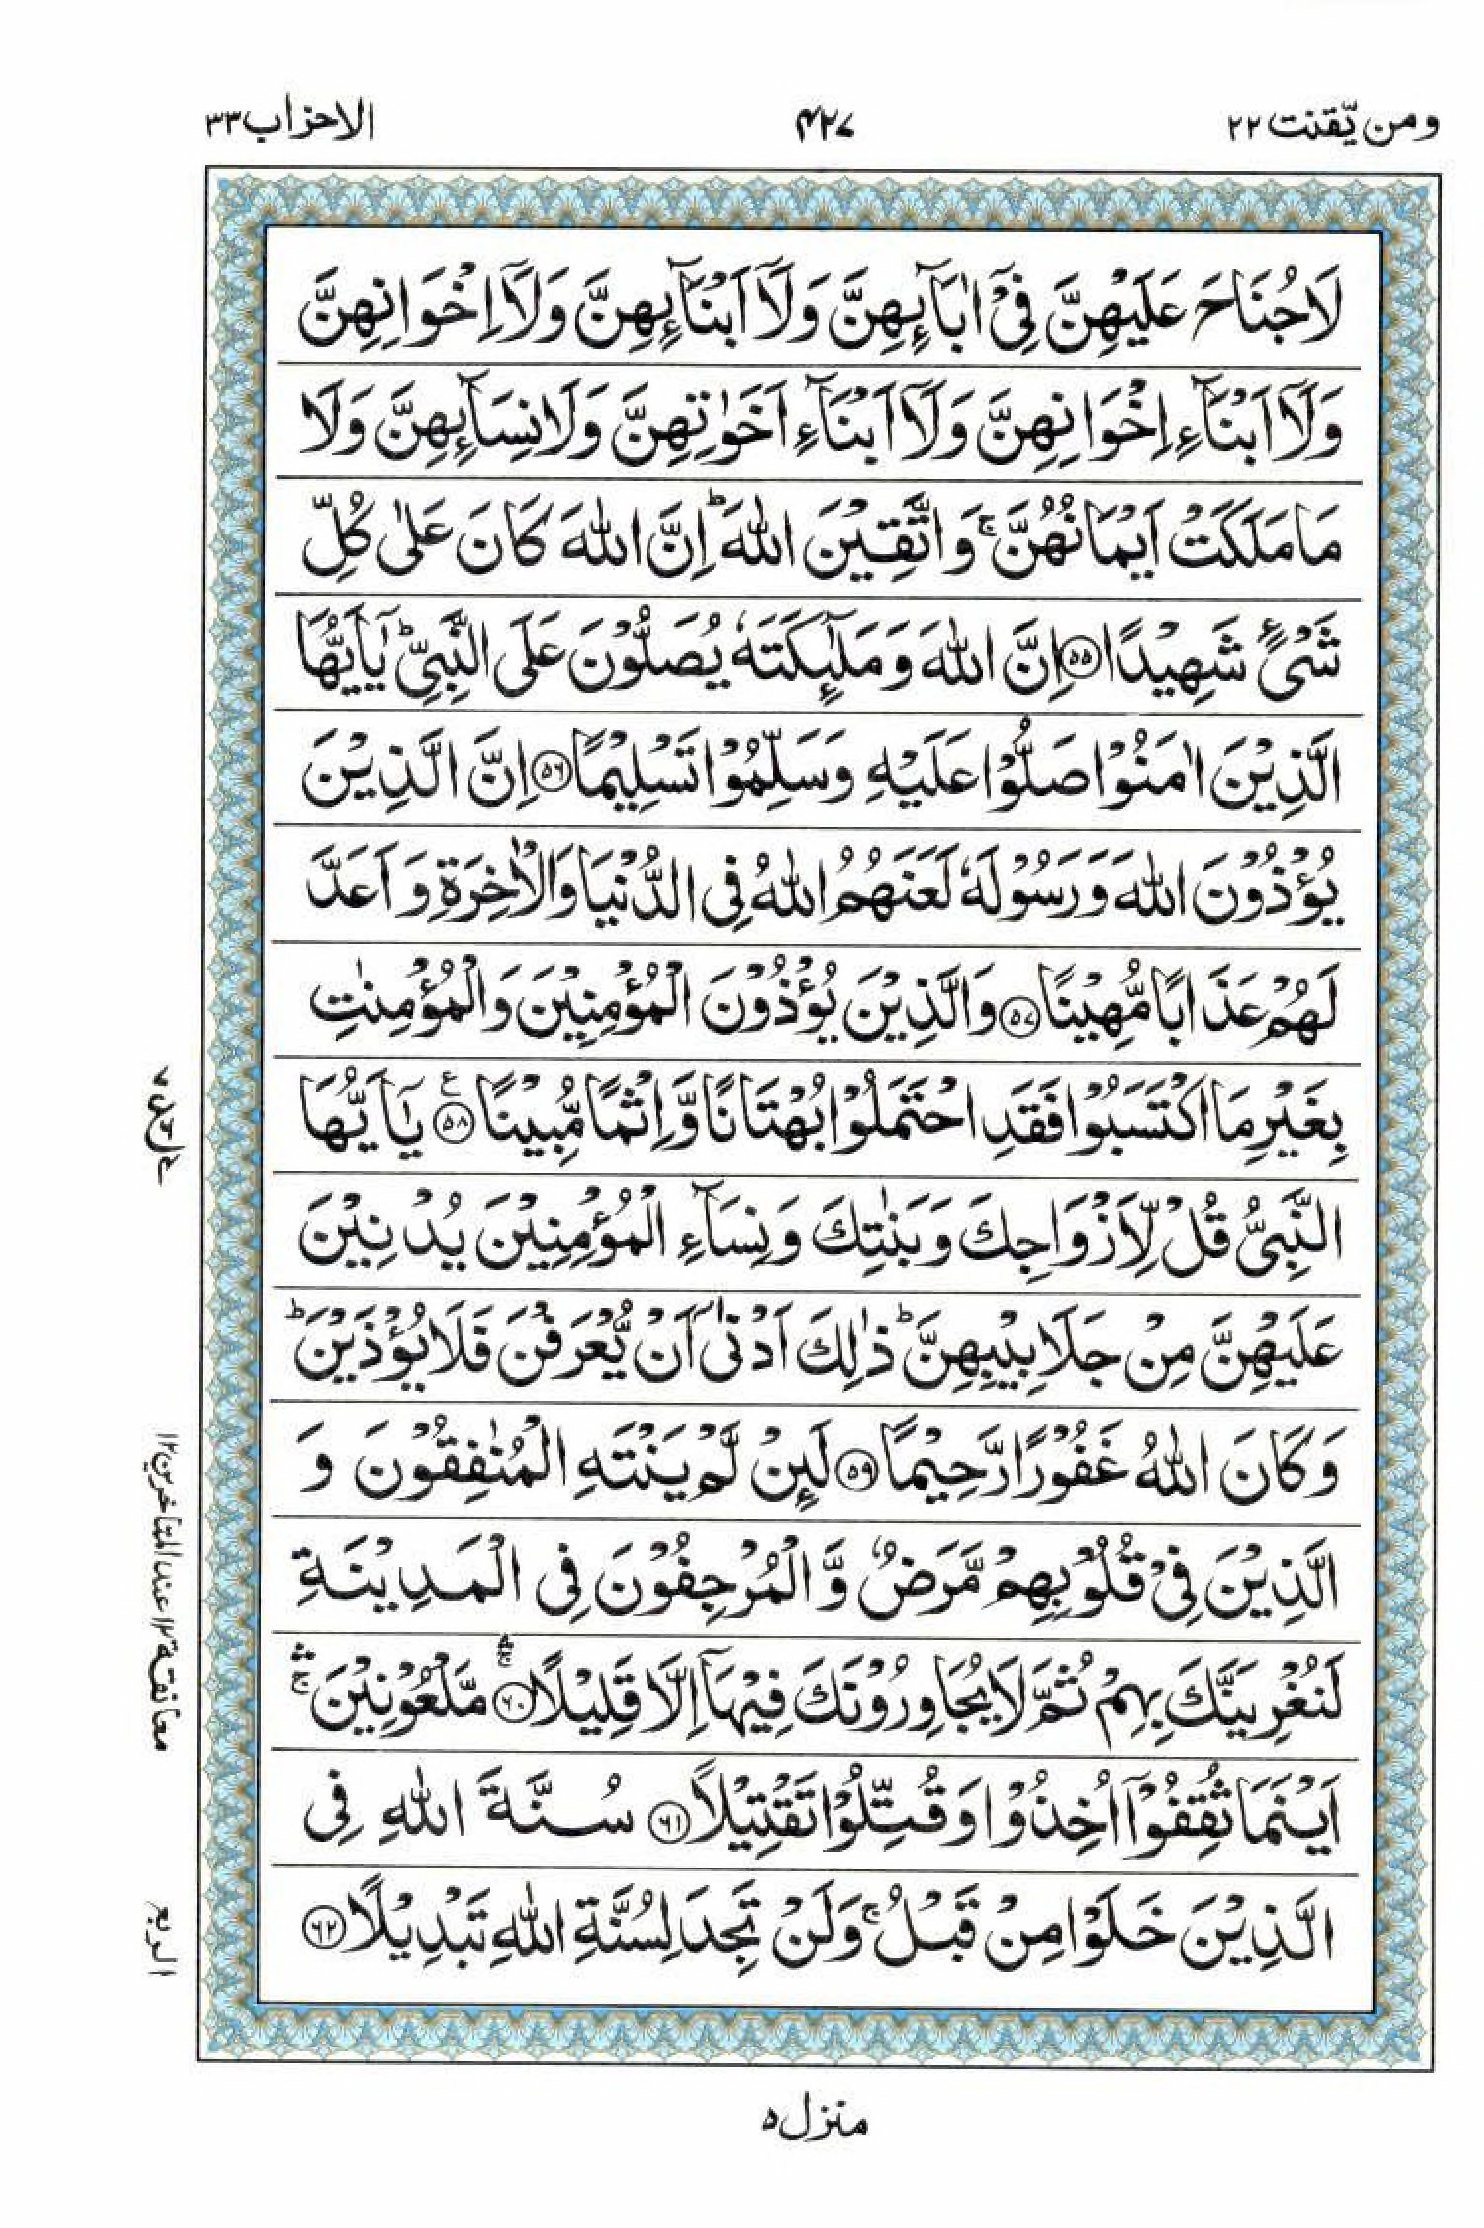 ومن یّقنت ۲۲
۴۲۷
الاحزاب ۳۳
لَا جُنَاحَ عَلَيْهِنَّ فِيْٓ اٰبَآئِهِنَّ وَلَآ اَبْنَآئِهِنَّ وَلَآ اِخْوَانِهِنَّ
وَلَآ اَبْنَآءِ اِخْوَانِهِنَّ وَلَآ اَبْنَآءِ اَخَوٰتِهِنَّ وَلَا نِسَآئِهِنَّ وَلَا
مَا مَلَكَتْ اَيْمَانُهُنَّ ۚ وَاتَّقِيْنَ اللّٰهَ ؕ اِنَّ اللّٰهَ كَانَ عَلٰى كُلِّ
شَيْءٍ شَهِيْدًا ۝۵۵ اِنَّ اللّٰهَ وَمَلٰٓئِكَتَهٗ يُصَلُّوْنَ عَلَى النَّبِيِّ ؕ يٰٓاَيُّهَا
الَّذِيْنَ اٰمَنُوْا صَلُّوْا عَلَيْهِ وَسَلِّمُوْا تَسْلِيْمًا ۝۵۶ اِنَّ الَّذِيْنَ
يُؤْذُوْنَ اللّٰهَ وَرَسُوْلَهٗ لَعَنَهُمُ اللّٰهُ فِي الدُّنْيَا وَالْاٰخِرَةِ وَاَعَدَّ
لَهُمْ عَذَابًا مُّهِيْنًا ۝۵۷ وَالَّذِيْنَ يُؤْذُوْنَ الْمُؤْمِنِيْنَ وَالْمُؤْمِنٰتِ
بِغَيْرِ مَا اكْتَسَبُوْا فَقَدِ احْتَمَلُوْا بُهْتَانًا وَّاِثْمًا مُّبِيْنًا ۝۵۸ ع يٰٓاَيُّهَا
النَّبِيُّ قُلْ لِّاَزْوَاجِكَ وَبَنٰتِكَ وَنِسَآءِ الْمُؤْمِنِيْنَ يُدْنِيْنَ
عَلَيْهِنَّ مِنْ جَلَابِيْبِهِنَّ ؕ ذٰلِكَ اَدْنٰٓى اَنْ يُّعْرَفْنَ فَلَا يُؤْذَيْنَ ؕ
وَكَانَ اللّٰهُ غَفُوْرًا رَّحِيْمًا ۝۵۹ لَئِنْ لَّمْ يَنْتَهِ الْمُنٰفِقُوْنَ وَ
الَّذِيْنَ فِيْ قُلُوْبِهِمْ مَّرَضٌ وَّالْمُرْجِفُوْنَ فِي الْمَدِيْنَةِ
لَنُغْرِيَنَّكَ بِهِمْ ثُمَّ لَا يُجَاوِرُوْنَكَ فِيْهَآ اِلَّا قَلِيْلًا ۝۶۰ ۛۚ مَّلْعُوْنِيْنَ ۛۚ
اَيْنَمَا ثُقِفُوْٓا اُخِذُوْا وَقُتِّلُوْا تَقْتِيْلًا ۝۶۱ سُنَّةَ اللّٰهِ فِي
الَّذِيْنَ خَلَوْا مِنْ قَبْلُ ۚ وَلَنْ تَجِدَ لِسُنَّةِ اللّٰهِ تَبْدِيْلًا ۝۶۲
معانقة ۱۲ عند المتاخرین ۱۲
الربع
منزل ۵